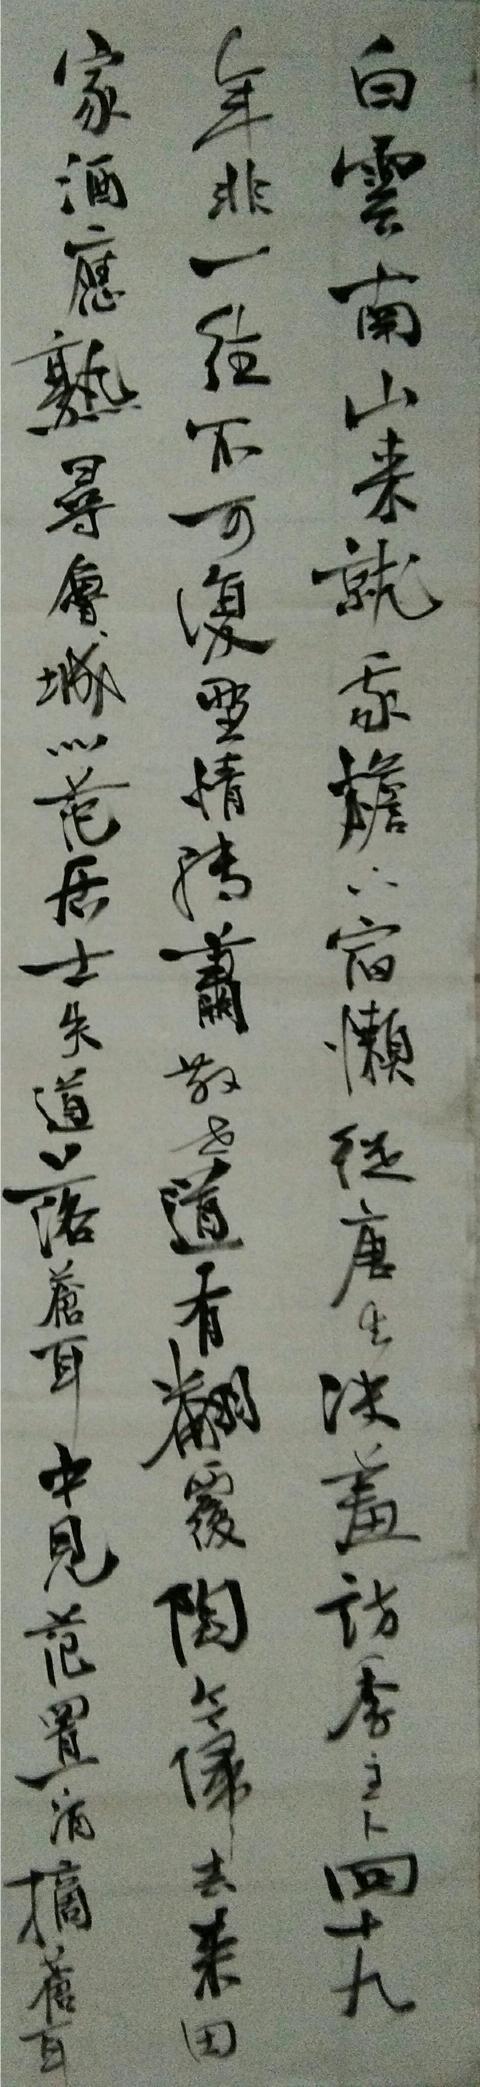 白雲南山来就我簷下宿懶從唐生決羞訪季主卜四十九
年非一往不可復野情轉蕭散世道有翻覆陶令歸去来田
家酒應熟尋魯城北范居士失道落蒼耳中見范置酒摘蒼耳